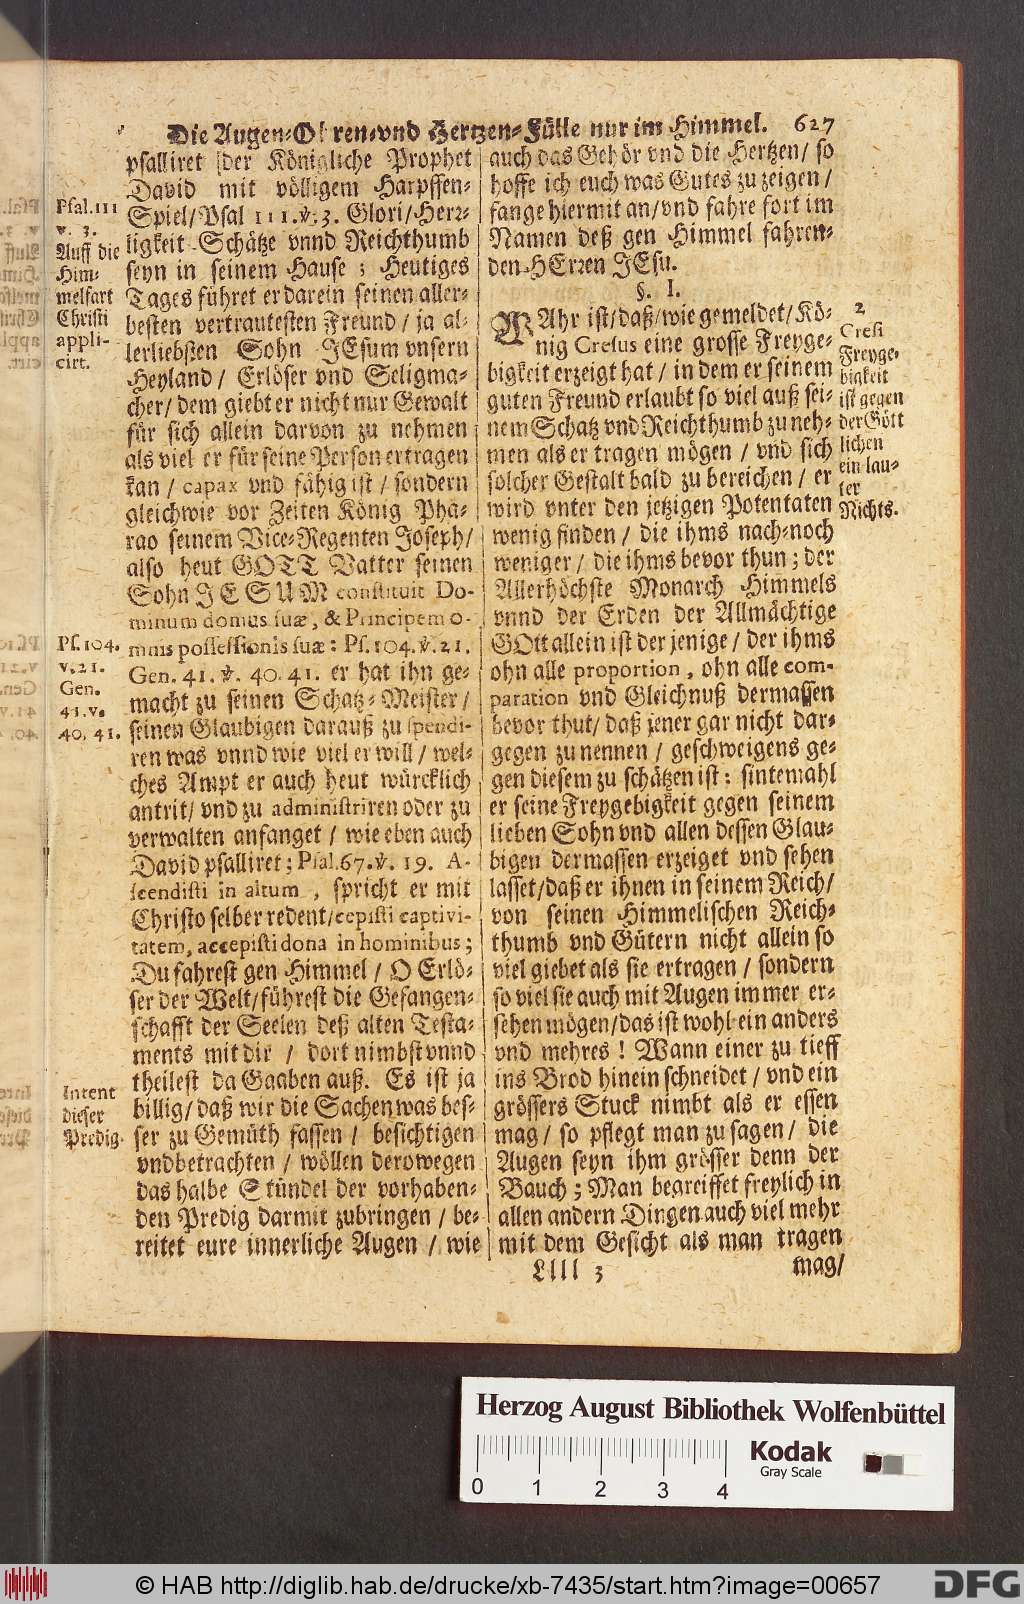 Die Augen-Ohren-vnd Hertzen-Fülle nur im Himmel. 627
psalliret der Königliche Prophet
David mit völligem Harpffen-
Spiel/Psal 111.℣.3. Glori/Herz-
ligkeit Schätze vnnd Reichthumb
seyn in seinem Hause; Heutiges
Tages führet er darein seinen aller-
besten vertrautesten Freund/ ja al-
lerliebsten Sohn JEsum vnsern
Heyland/ Erlöser vnd Seligma-
cher/ dem giebt er nicht nur Gewalt
für sich allein darvon zu nehmen
als viel er für seine Person ertragen
kan/ capax vnd fähig ist/ sondern
gleichwie vor Zeiten König Pha-
rao seinem Vice-Regenten Joseph/
also heut GOTT Vatter seinen
Sohn JESUM constituit Do-
minum domus suæ, & Principem o-
mnis possessionis suæ: Ps. 104.℣.21.
Gen. 41.℣. 40. 41. er hat ihn ge-
macht zu seinen Schatz-Meister/
seinen Glaubigen darauß zu spendi-
ren was vnnd wie viel er will/ wel-
ches Ampt er auch heut würcklich
antrit/ vnd zu administriren oder zu
verwalten anfanget/ wie eben auch
David psalliret; Psal. 67.℣. 19. A-
scendisti in altum, spricht er mit
Christo selber redent/cepisti captivi-
tatem, accepisti dona in hominibus;
Du fahrest gen Himmel/ O Erlö-
ser der Welt/führest die Gefangen-
schafft der Seelen deß alten Testa-
ments mit dir/ dort nimbst vnnd
theilest da Gaaben auß. Es ist ja
billig/ daß wir die Sachen was bes-
ser zu Gemüth fassen/ besichtigen
vnd betrachten/ wöllen derowegen
das halbe Stündel der vorhaben-
den Predig darmit zubringen/ be-
reitet eure innerliche Augen/ wie
Psal. 111
v. 3.
Auff die
Him-
melfart
Christi
appli-
cirt.
Ps. 104.
v. 21.
Gen.
41. v.
40. 41.
Intent
dieser
Predig.
auch das Gehör vnd die Hertzen/ so
hoffe ich euch was Gutes zu zeigen/
fange hiermit an/vnd fahre fort im
Namen deß gen Himmel fahren-
den HErzen JEsu.
§. I.
WAhr ist/daß/wie gemeldet/Kö-
nig Cresus eine grosse Freyge-
bigkeit erzeigt hat/ in dem er seinem
guten Freund erlaubt so viel auß sei-
nem Schatz vnd Reichthumb zu neh-
men als er tragen mögen/ vnd sich
solcher Gestalt bald zu bereichen/ er
wird vnter den jetzigen Potentaten
wenig finden/ die ihms nach-noch
weniger/ die ihms bevor thun; der
Allerhöchste Monarch Himmels
vnnd der Erden der Allmächtige
GOtt allein ist der jenige/ der ihms
ohn alle proportion, ohn alle com-
paration vnd Gleichnuß dermassen
bevor thut/ daß jener gar nicht dar-
gegen zu nennen/ geschweigens ge-
gen diesem zu schätzen ist: sintemahl
er seine Freygebigkeit gegen seinem
lieben Sohn vnd allen dessen Glau-
bigen dermassen erzeiget vnd sehen
lasset/daß er ihnen in seinem Reich/
von seinen Himmelischen Reich-
thumb vnd Gütern nicht allein so
viel giebet als sie ertragen/ sondern
so viel sie auch mit Augen immer er-
sehen mögen/das ist wohl ein anders
vnd mehres! Wann einer zu tieff
ins Brod hinein schneidet/ vnd ein
grössers Stuck nimbt als er essen
mag/ so pflegt man zu sagen/ die
Augen seyn ihm grösser denn der
Bauch; Man begreiffet freylich in
allen andern Dingen auch viel mehr
mit dem Gesicht als man tragen
2
Cresi
Freyge-
bigkeit
ist gegen
der Gött
lichen
ein lau-
ter
Nichts.
Llll 3
mag/
Herzog August Bibliothek Wolfenbüttel
Kodak
Gray Scale
0 1 2 3 4
© HAB http://diglib.hab.de/drucke/xb-7435/start.htm?image=00657
DFG